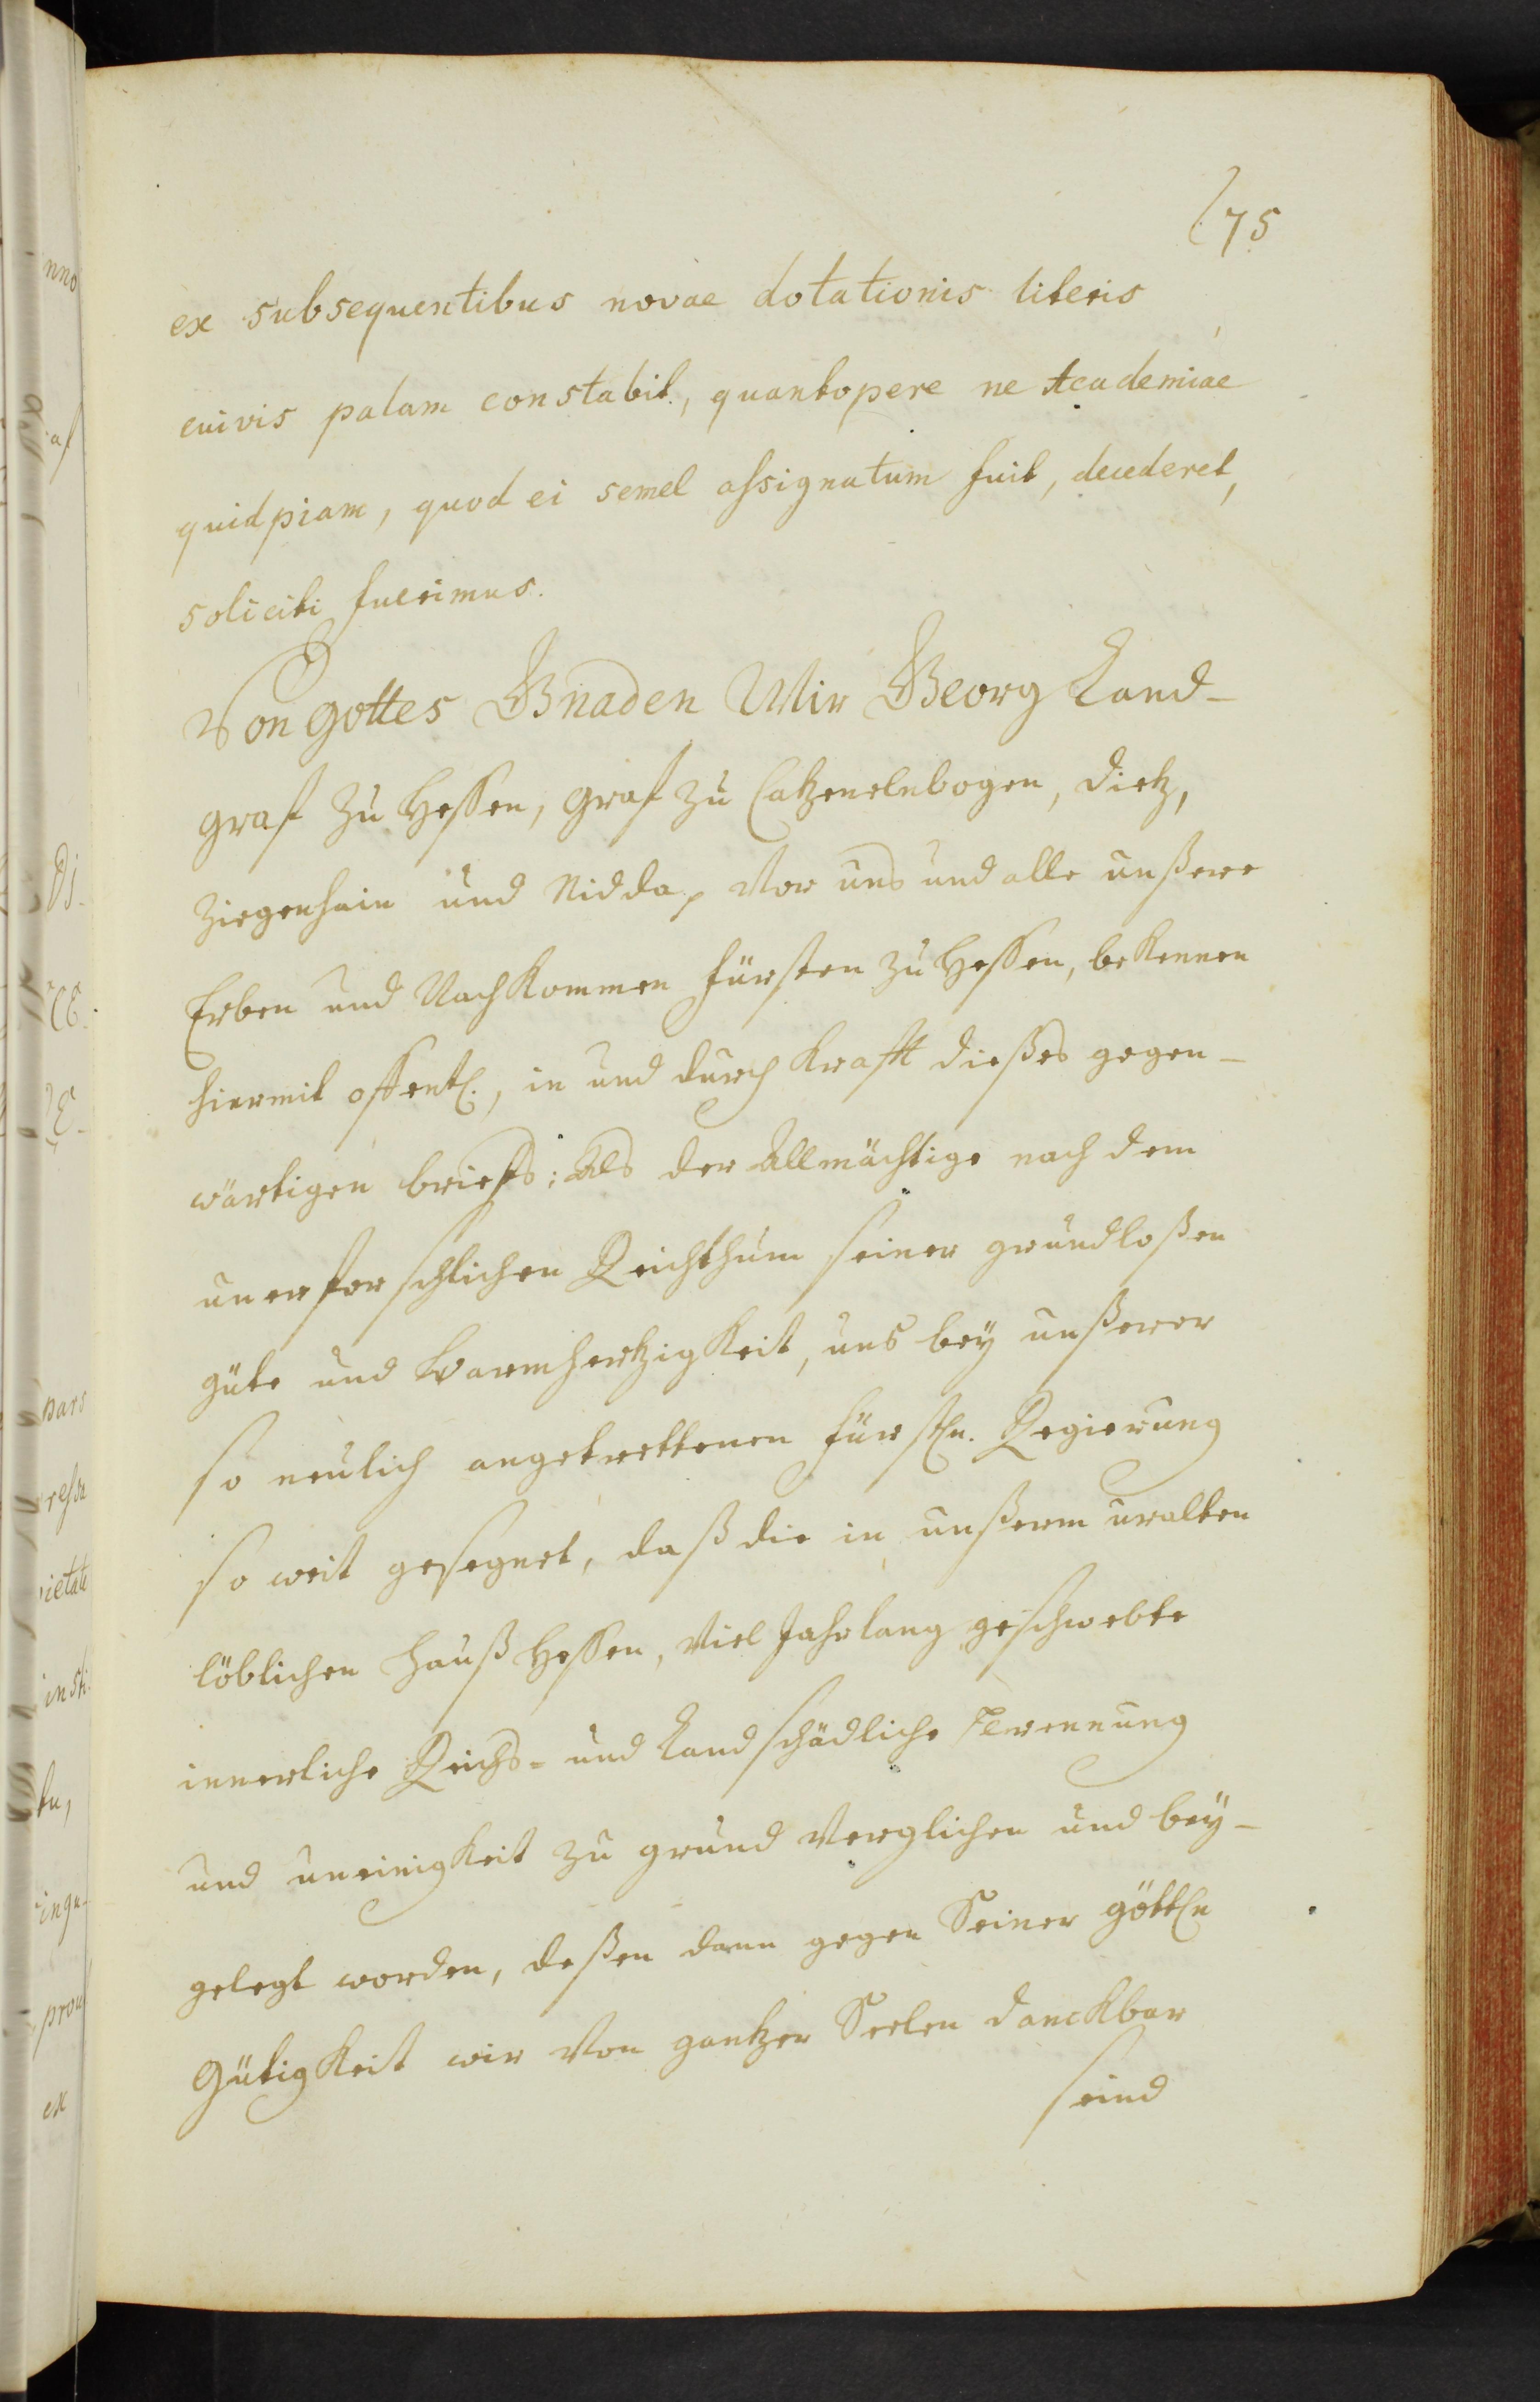 75
ex subsequentibus novae dotationis literis
cuivis palam constabit, quantopere ne Academiae
quidpiam, quod ei semel assignatum fuit, decederet,
soliciti fuerimus.
Von Gottes Gnaden Wir Georg Land-
graf zu Hessen, Graf zu Catzenelnbogen, Dietz,
Ziegenhain und Nidda, Vor uns und alle unßere
Erben und Nachkommen Fürsten zu Hessen, bekennen
hiermit offentl., in und durch Krafft dießes gegen-
wärtigen briefs; Als der Allmächtige nach dem
unerforschlichen Reichthum seiner grundloßen
güte und Barmhertzigkeit, uns bey unßerer
so neulich angetrettenen Fürstln. Regierung
so weit gesegnet, daß die in unßerm uralten
löblichen Hauß Hessen, viel Jahr lang geschwebte
innerliche Reichs- und Landschädliche Trennung
und uneinigkeit zu grund verglichen und bey-
gelegt worden, deßen dann gegen Seiner göttln
Gütigkeit wir von gantzer Seelen danckbar
seind
nno
pars
ressa
ietate
insti
tu,
ingu-
prou
ex